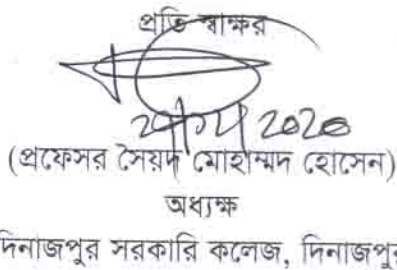 প্রতি স্বাক্ষর
2020
(প্রফেসর সৈয়দ মোহাম্মদ হোসেন)
অধ্যক্ষ
দিনাজপুর সরকারি কলেজ, দিনাজপুর